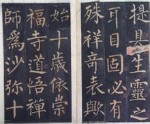 提鑿生靈之
耳目固必有
殊祥奇表歟
始十歲依崇
福寺道悟禪
師為沙弥十